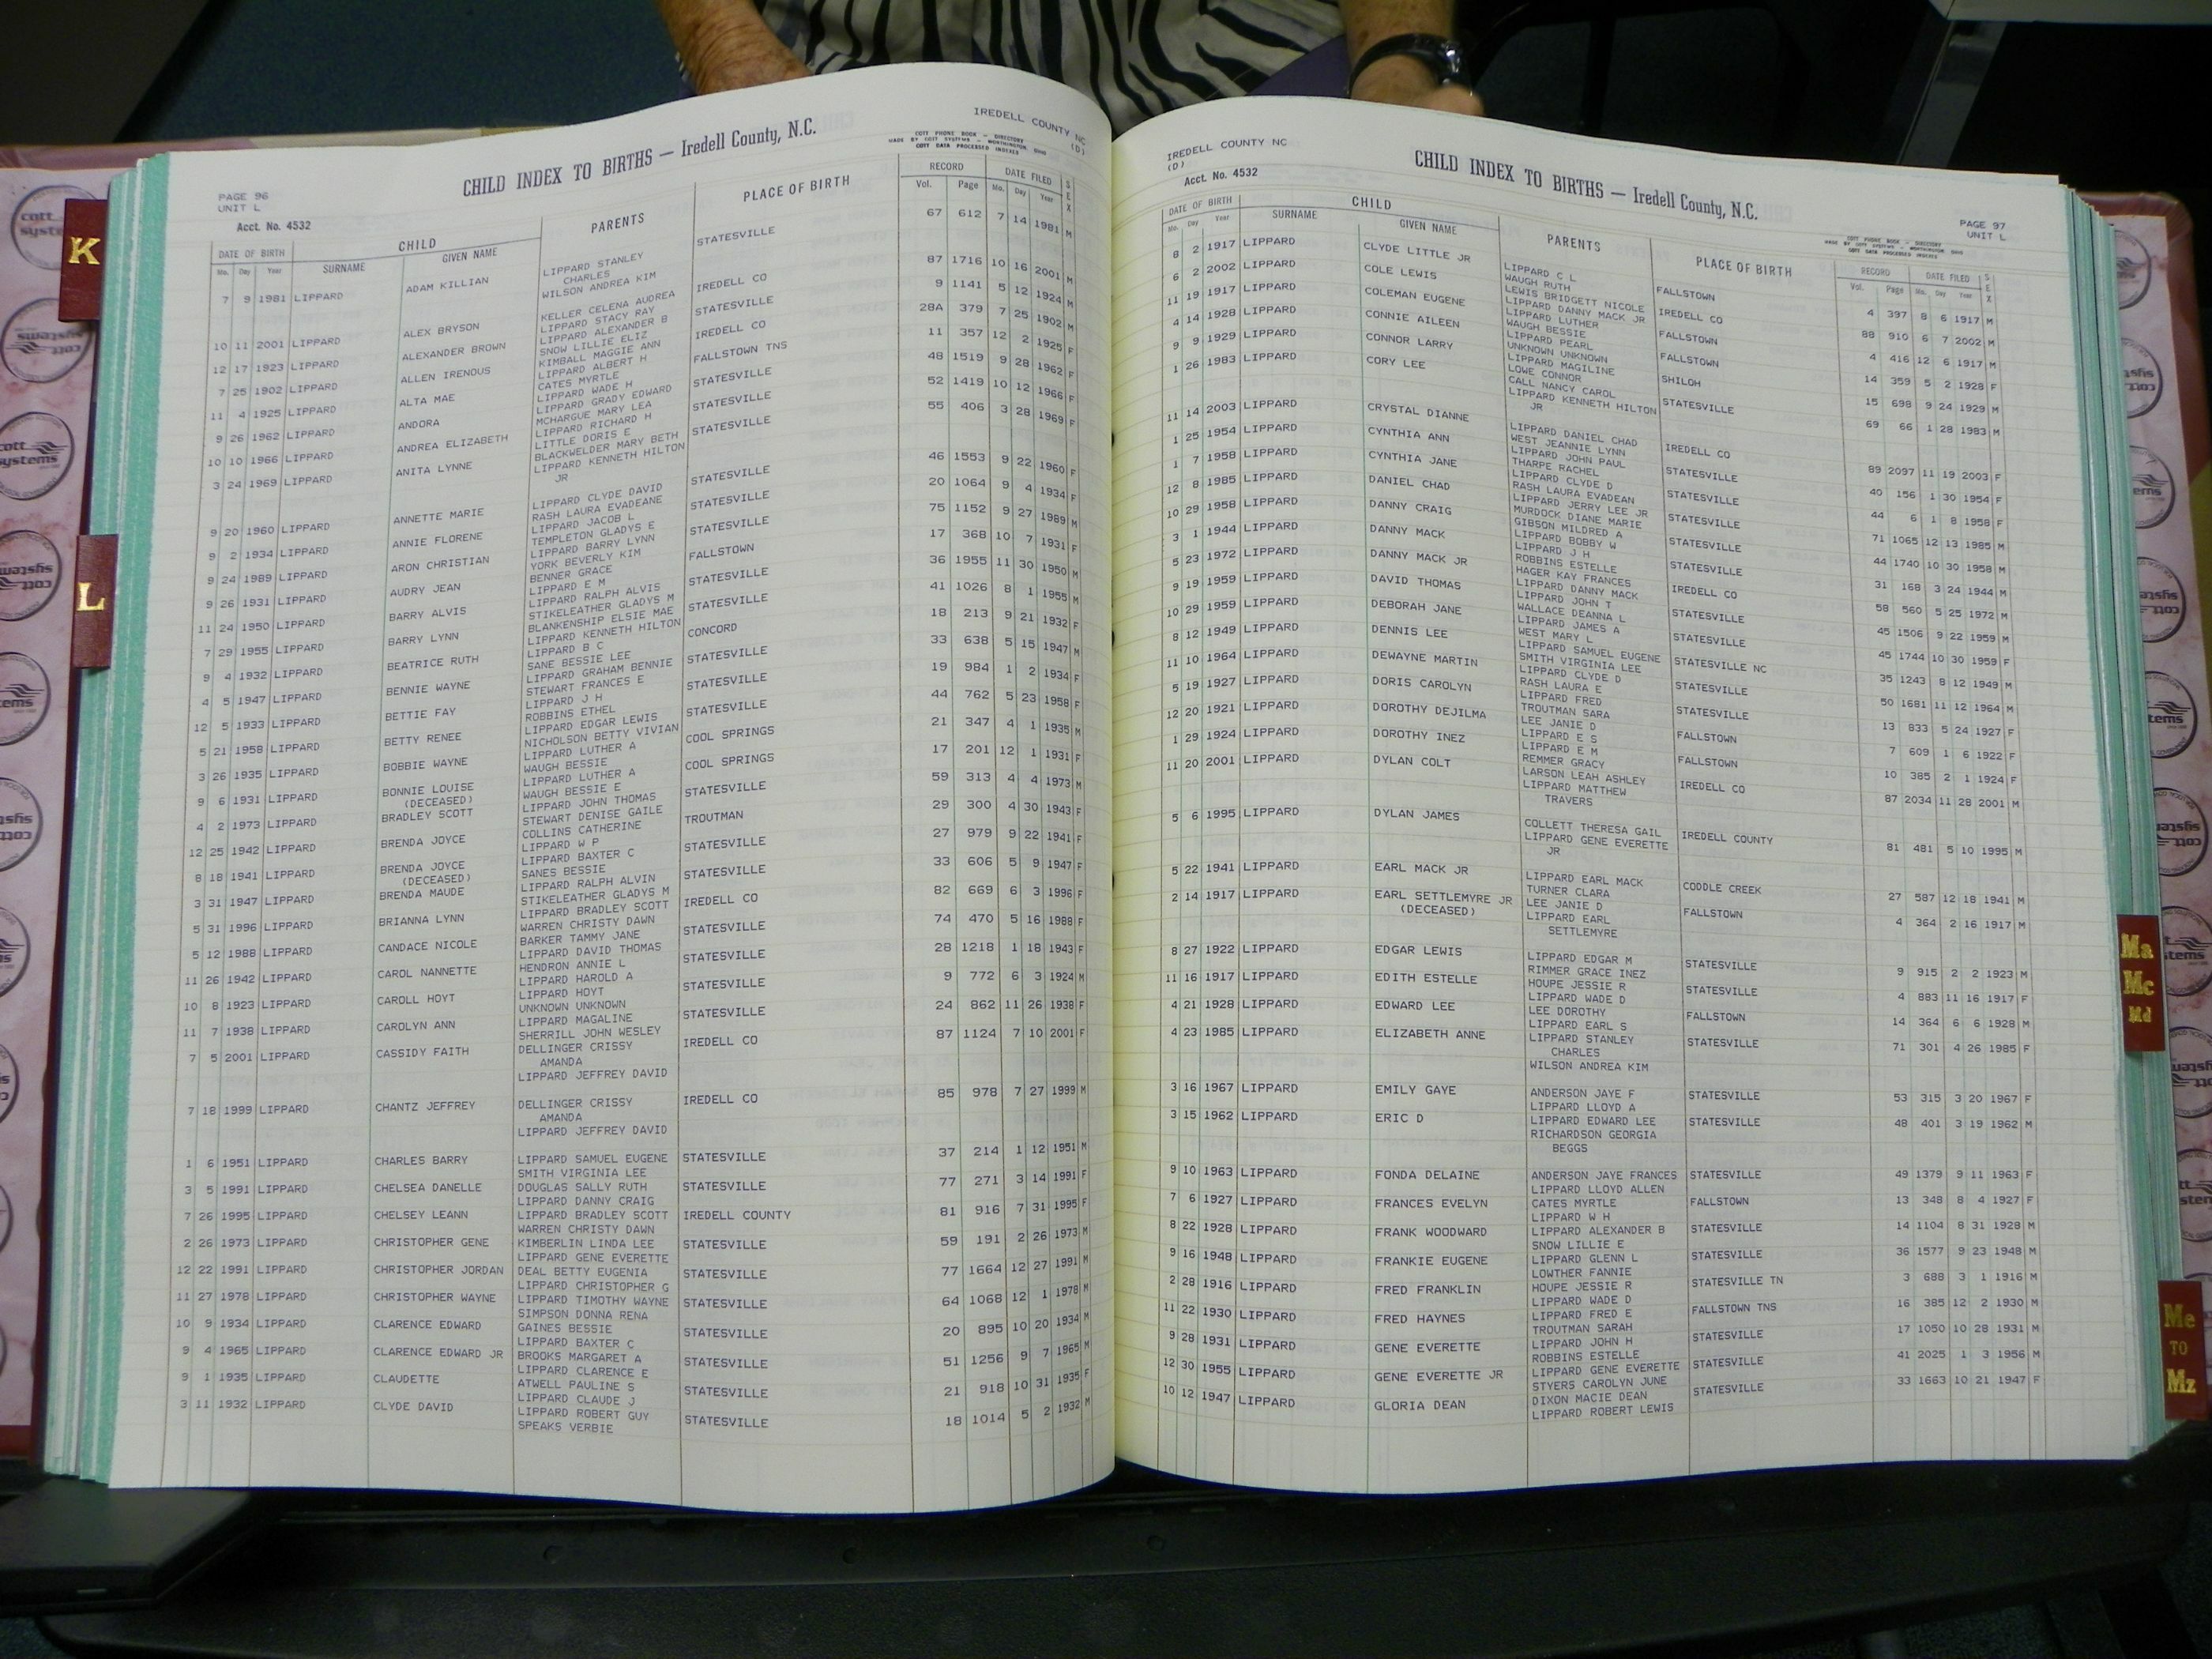 IREDELL COUNTY NC
(D)
CHILD INDEX TO BIRTHS — Iredell County, N.C.
COTT PHONE BOOK — DIRECTORY
MADE BY COTT SYSTEMS — WORTHINGTON, OHIO
COTT DATA PROCESSED INDEXES
PAGE 96
UNIT L
Acct. No. 4532
DATE OF BIRTH CHILD PARENTS PLACE OF BIRTH RECORD DATE FILED SEX
Mo. Day Year SURNAME GIVEN NAME Vol. Page Mo. Day Year
7 9 1981 LIPPARD ADAM KILLIAN LIPPARD STANLEY STATESVILLE 67 612 7 14 1981 M
CHARLES
WILSON ANDREA KIM
10 11 2001 LIPPARD ALEX BRYSON KELLER CELENA AUDREA IREDELL CO 87 1716 10 16 2001 M
LIPPARD STACY RAY
12 17 1923 LIPPARD ALEXANDER BROWN LIPPARD ALEXANDER B STATESVILLE 9 1141 5 12 1924 M
SNOW LILLIE ELIZ
7 25 1902 LIPPARD ALLEN IRENOUS KIMBALL MAGGIE ANN IREDELL CO 28A 379 7 25 1902 M
LIPPARD ALBERT H
11 4 1925 LIPPARD ALTA MAE CATES MYRTLE FALLSTOWN TNS 11 357 12 2 1925 F
LIPPARD WADE H
9 26 1962 LIPPARD ANDORA LIPPARD GRADY EDWARD STATESVILLE 48 1519 9 28 1962 F
MCHARGUE MARY LEA
10 10 1966 LIPPARD ANDREA ELIZABETH LIPPARD RICHARD H STATESVILLE 52 1419 10 12 1966 F
LITTLE DORIS E
3 24 1969 LIPPARD ANITA LYNNE BLACKWELDER MARY BETH STATESVILLE 55 406 3 28 1969 F
LIPPARD KENNETH HILTON
JR
9 20 1960 LIPPARD ANNETTE MARIE LIPPARD CLYDE DAVID STATESVILLE 46 1553 9 22 1960 F
RASH LAURA EVADEANE
9 2 1934 LIPPARD ANNIE FLORENE LIPPARD JACOB L STATESVILLE 20 1064 9 4 1934 F
TEMPLETON GLADYS E
9 24 1989 LIPPARD ARON CHRISTIAN LIPPARD BARRY LYNN STATESVILLE 75 1152 9 27 1989 M
YORK BEVERLY KIM
9 26 1931 LIPPARD AUDRY JEAN BENNER GRACE FALLSTOWN 17 368 10 7 1931 F
LIPPARD E M
11 24 1950 LIPPARD BARRY ALVIS LIPPARD RALPH ALVIS STATESVILLE 36 1955 11 30 1950 M
STIKELEATHER GLADYS M
7 29 1955 LIPPARD BARRY LYNN BLANKENSHIP ELSIE MAE STATESVILLE 41 1026 8 1 1955 M
LIPPARD KENNETH HILTON
9 4 1932 LIPPARD BEATRICE RUTH LIPPARD B C CONCORD 18 213 9 21 1932 F
SANE BESSIE LEE
4 5 1947 LIPPARD BENNIE WAYNE LIPPARD GRAHAM BENNIE STATESVILLE 33 638 5 15 1947 M
STEWART FRANCES E
12 5 1933 LIPPARD BETTIE FAY LIPPARD J H STATESVILLE 19 984 1 2 1934 F
ROBBINS ETHEL
5 21 1958 LIPPARD BETTY RENEE LIPPARD EDGAR LEWIS STATESVILLE 44 762 5 23 1958 F
NICHOLSON BETTY VIVIAN
3 26 1935 LIPPARD BOBBIE WAYNE LIPPARD LUTHER A COOL SPRINGS 21 347 4 1 1935 M
WAUGH BESSIE
9 6 1931 LIPPARD BONNIE LOUISE LIPPARD LUTHER A COOL SPRINGS 17 201 12 1 1931 F
(DECEASED) WAUGH BESSIE E
4 2 1973 LIPPARD BRADLEY SCOTT LIPPARD JOHN THOMAS STATESVILLE 59 313 4 4 1973 M
STEWART DENISE GAILE
12 25 1942 LIPPARD BRENDA JOYCE COLLINS CATHERINE TROUTMAN 29 300 4 30 1943 F
LIPPARD W P
8 18 1941 LIPPARD BRENDA JOYCE LIPPARD BAXTER C STATESVILLE 27 979 9 22 1941 F
(DECEASED) SANES BESSIE
3 31 1947 LIPPARD BRENDA MAUDE LIPPARD RALPH ALVIN STATESVILLE 33 606 5 9 1947 F
STIKELEATHER GLADYS M
5 31 1996 LIPPARD BRIANNA LYNN LIPPARD BRADLEY SCOTT IREDELL CO 82 669 6 3 1996 F
WARREN CHRISTY DAWN
5 12 1988 LIPPARD CANDACE NICOLE BARKER TAMMY JANE STATESVILLE 74 470 5 16 1988 F
LIPPARD DAVID THOMAS
11 26 1942 LIPPARD CAROL NANNETTE HENDRON ANNIE L STATESVILLE 28 1218 1 18 1943 F
LIPPARD HAROLD A
10 8 1923 LIPPARD CAROLL HOYT LIPPARD HOYT STATESVILLE 9 772 6 3 1924 M
UNKNOWN UNKNOWN
11 7 1938 LIPPARD CAROLYN ANN LIPPARD MAGALINE STATESVILLE 24 862 11 26 1938 F
SHERRILL JOHN WESLEY
7 5 2001 LIPPARD CASSIDY FAITH DELLINGER CRISSY IREDELL CO 87 1124 7 10 2001 F
AMANDA
LIPPARD JEFFREY DAVID
7 18 1999 LIPPARD CHANTZ JEFFREY DELLINGER CRISSY IREDELL CO 85 978 7 27 1999 M
AMANDA
LIPPARD JEFFREY DAVID
1 6 1951 LIPPARD CHARLES BARRY LIPPARD SAMUEL EUGENE STATESVILLE 37 214 1 12 1951 M
SMITH VIRGINIA LEE
3 5 1991 LIPPARD CHELSEA DANELLE DOUGLAS SALLY RUTH STATESVILLE 77 271 3 14 1991 F
LIPPARD DANNY CRAIG
7 26 1995 LIPPARD CHELSEY LEANN LIPPARD BRADLEY SCOTT IREDELL COUNTY 81 916 7 31 1995 F
WARREN CHRISTY DAWN
2 26 1973 LIPPARD CHRISTOPHER GENE KIMBERLIN LINDA LEE STATESVILLE 59 191 2 26 1973 M
LIPPARD GENE EVERETTE
12 22 1991 LIPPARD CHRISTOPHER JORDAN DEAL BETTY EUGENIA STATESVILLE 77 1664 12 27 1991 M
LIPPARD CHRISTOPHER G
11 27 1978 LIPPARD CHRISTOPHER WAYNE LIPPARD TIMOTHY WAYNE STATESVILLE 64 1068 12 1 1978 M
SIMPSON DONNA RENA
10 9 1934 LIPPARD CLARENCE EDWARD GAINES BESSIE STATESVILLE 20 895 10 20 1934 M
LIPPARD BAXTER C
9 4 1965 LIPPARD CLARENCE EDWARD JR BROOKS MARGARET A STATESVILLE 51 1256 9 7 1965 M
LIPPARD CLARENCE E
9 1 1935 LIPPARD CLAUDETTE ATWELL PAULINE S STATESVILLE 21 918 10 31 1935 F
LIPPARD CLAUDE J
3 11 1932 LIPPARD CLYDE DAVID LIPPARD ROBERT GUY STATESVILLE 18 1014 5 2 1932 M
SPEAKS VERBIE
IREDELL COUNTY NC
(D)
Acct. No. 4532
CHILD INDEX TO BIRTHS — Iredell County, N.C.
COTT PHONE BOOK — DIRECTORY
MADE BY COTT SYSTEMS — WORTHINGTON, OHIO
COTT DATA PROCESSED INDEXES
PAGE 97
UNIT L
DATE OF BIRTH CHILD PARENTS PLACE OF BIRTH RECORD DATE FILED SEX
Mo. Day Year SURNAME GIVEN NAME Vol. Page Mo. Day Year
8 2 1917 LIPPARD CLYDE LITTLE JR LIPPARD C L FALLSTOWN 4 397 8 6 1917 M
WAUGH RUTH
6 2 2002 LIPPARD COLE LEWIS LEWIS BRIDGETT NICOLE IREDELL CO 88 910 6 7 2002 M
LIPPARD DANNY MACK JR
11 19 1917 LIPPARD COLEMAN EUGENE LIPPARD LUTHER FALLSTOWN 4 416 12 6 1917 M
WAUGH BESSIE
4 14 1928 LIPPARD CONNIE AILEEN LIPPARD PEARL FALLSTOWN 14 359 5 2 1928 F
UNKNOWN UNKNOWN
9 9 1929 LIPPARD CONNOR LARRY LIPPARD MAGILINE SHILOH 15 698 9 24 1929 M
LOWE CONNOR
1 26 1983 LIPPARD CORY LEE CALL NANCY CAROL STATESVILLE 69 66 1 28 1983 M
LIPPARD KENNETH HILTON
JR
11 14 2003 LIPPARD CRYSTAL DIANNE LIPPARD DANIEL CHAD IREDELL CO 89 2097 11 19 2003 F
WEST JEANNIE LYNN
1 25 1954 LIPPARD CYNTHIA ANN LIPPARD JOHN PAUL STATESVILLE 40 156 1 30 1954 F
THARPE RACHEL
1 7 1958 LIPPARD CYNTHIA JANE LIPPARD CLYDE D STATESVILLE 44 6 1 8 1958 F
RASH LAURA EVADEAN
12 8 1985 LIPPARD DANIEL CHAD LIPPARD JERRY LEE JR STATESVILLE 71 1065 12 13 1985 M
MURDOCK DIANE MARIE
10 29 1958 LIPPARD DANNY CRAIG GIBSON MILDRED A STATESVILLE 44 1740 10 30 1958 M
LIPPARD BOBBY W
3 1 1944 LIPPARD DANNY MACK LIPPARD J H IREDELL CO 31 168 3 24 1944 M
ROBBINS ESTELLE
5 23 1972 LIPPARD DANNY MACK JR HAGER KAY FRANCES STATESVILLE 58 560 5 25 1972 M
LIPPARD DANNY MACK
9 19 1959 LIPPARD DAVID THOMAS LIPPARD JOHN T STATESVILLE 45 1506 9 22 1959 M
WALLACE DEANNA L
10 29 1959 LIPPARD DEBORAH JANE LIPPARD JAMES A STATESVILLE NC 45 1744 10 30 1959 F
WEST MARY L
8 12 1949 LIPPARD DENNIS LEE LIPPARD SAMUEL EUGENE STATESVILLE 35 1243 8 12 1949 M
SMITH VIRGINIA LEE
11 10 1964 LIPPARD DEWAYNE MARTIN LIPPARD CLYDE D STATESVILLE 50 1681 11 12 1964 M
RASH LAURA E
5 19 1927 LIPPARD DORIS CAROLYN LIPPARD FRED FALLSTOWN 13 833 5 24 1927 F
TROUTMAN SARA
12 20 1921 LIPPARD DOROTHY DEJILMA LEE JANIE D FALLSTOWN 7 609 1 6 1922 F
LIPPARD E S
1 29 1924 LIPPARD DOROTHY INEZ LIPPARD E M FALLSTOWN 10 385 2 1 1924 F
REMMER GRACY
11 20 2001 LIPPARD DYLAN COLT LARSON LEAH ASHLEY IREDELL CO 87 2034 11 28 2001 M
LIPPARD MATTHEW
TRAVERS
5 6 1995 LIPPARD DYLAN JAMES COLLETT THERESA GAIL IREDELL COUNTY 81 481 5 10 1995 M
LIPPARD GENE EVERETTE
JR
5 22 1941 LIPPARD EARL MACK JR LIPPARD EARL MACK CODDLE CREEK 27 587 12 18 1941 M
TURNER CLARA
2 14 1917 LIPPARD EARL SETTLEMYRE JR LEE JANIE D FALLSTOWN 4 364 2 16 1917 M
(DECEASED) LIPPARD EARL
SETTLEMYRE
8 27 1922 LIPPARD EDGAR LEWIS LIPPARD EDGAR M STATESVILLE 9 915 2 2 1923 M
RIMMER GRACE INEZ
11 16 1917 LIPPARD EDITH ESTELLE HOUPE JESSIE R STATESVILLE 4 883 11 16 1917 F
LIPPARD WADE D
4 21 1928 LIPPARD EDWARD LEE LEE DOROTHY FALLSTOWN 14 364 6 6 1928 M
LIPPARD EARL S
4 23 1985 LIPPARD ELIZABETH ANNE LIPPARD STANLEY STATESVILLE 71 301 4 26 1985 F
CHARLES
WILSON ANDREA KIM
3 16 1967 LIPPARD EMILY GAYE ANDERSON JAYE F STATESVILLE 53 315 3 20 1967 F
LIPPARD LLOYD A
3 15 1962 LIPPARD ERIC D LIPPARD EDWARD LEE STATESVILLE 48 401 3 19 1962 M
RICHARDSON GEORGIA
BEGGS
9 10 1963 LIPPARD FONDA DELAINE ANDERSON JAYE FRANCES STATESVILLE 49 1379 9 11 1963 F
LIPPARD LLOYD ALLEN
7 6 1927 LIPPARD FRANCES EVELYN CATES MYRTLE FALLSTOWN 13 348 8 4 1927 F
LIPPARD W H
8 22 1928 LIPPARD FRANK WOODWARD LIPPARD ALEXANDER B STATESVILLE 14 1104 8 31 1928 M
SNOW LILLIE E
9 16 1948 LIPPARD FRANKIE EUGENE LIPPARD GLENN L STATESVILLE 36 1577 9 23 1948 M
LOWTHER FANNIE
2 28 1916 LIPPARD FRED FRANKLIN HOUPE JESSIE R STATESVILLE TN 3 688 3 1 1916 M
LIPPARD WADE D
11 22 1930 LIPPARD FRED HAYNES LIPPARD FRED E FALLSTOWN TNS 16 385 12 2 1930 M
TROUTMAN SARAH
9 28 1931 LIPPARD GENE EVERETTE LIPPARD JOHN H STATESVILLE 17 1050 10 28 1931 M
ROBBINS ESTELLE
12 30 1955 LIPPARD GENE EVERETTE JR LIPPARD GENE EVERETTE STATESVILLE 41 2025 1 3 1956 M
STYERS CAROLYN JUNE
10 12 1947 LIPPARD GLORIA DEAN DIXON MACIE DEAN STATESVILLE 33 1663 10 21 1947 F
LIPPARD ROBERT LEWIS
K
L
Ma
Mc
Md
Me
TO
Mz
cott systems